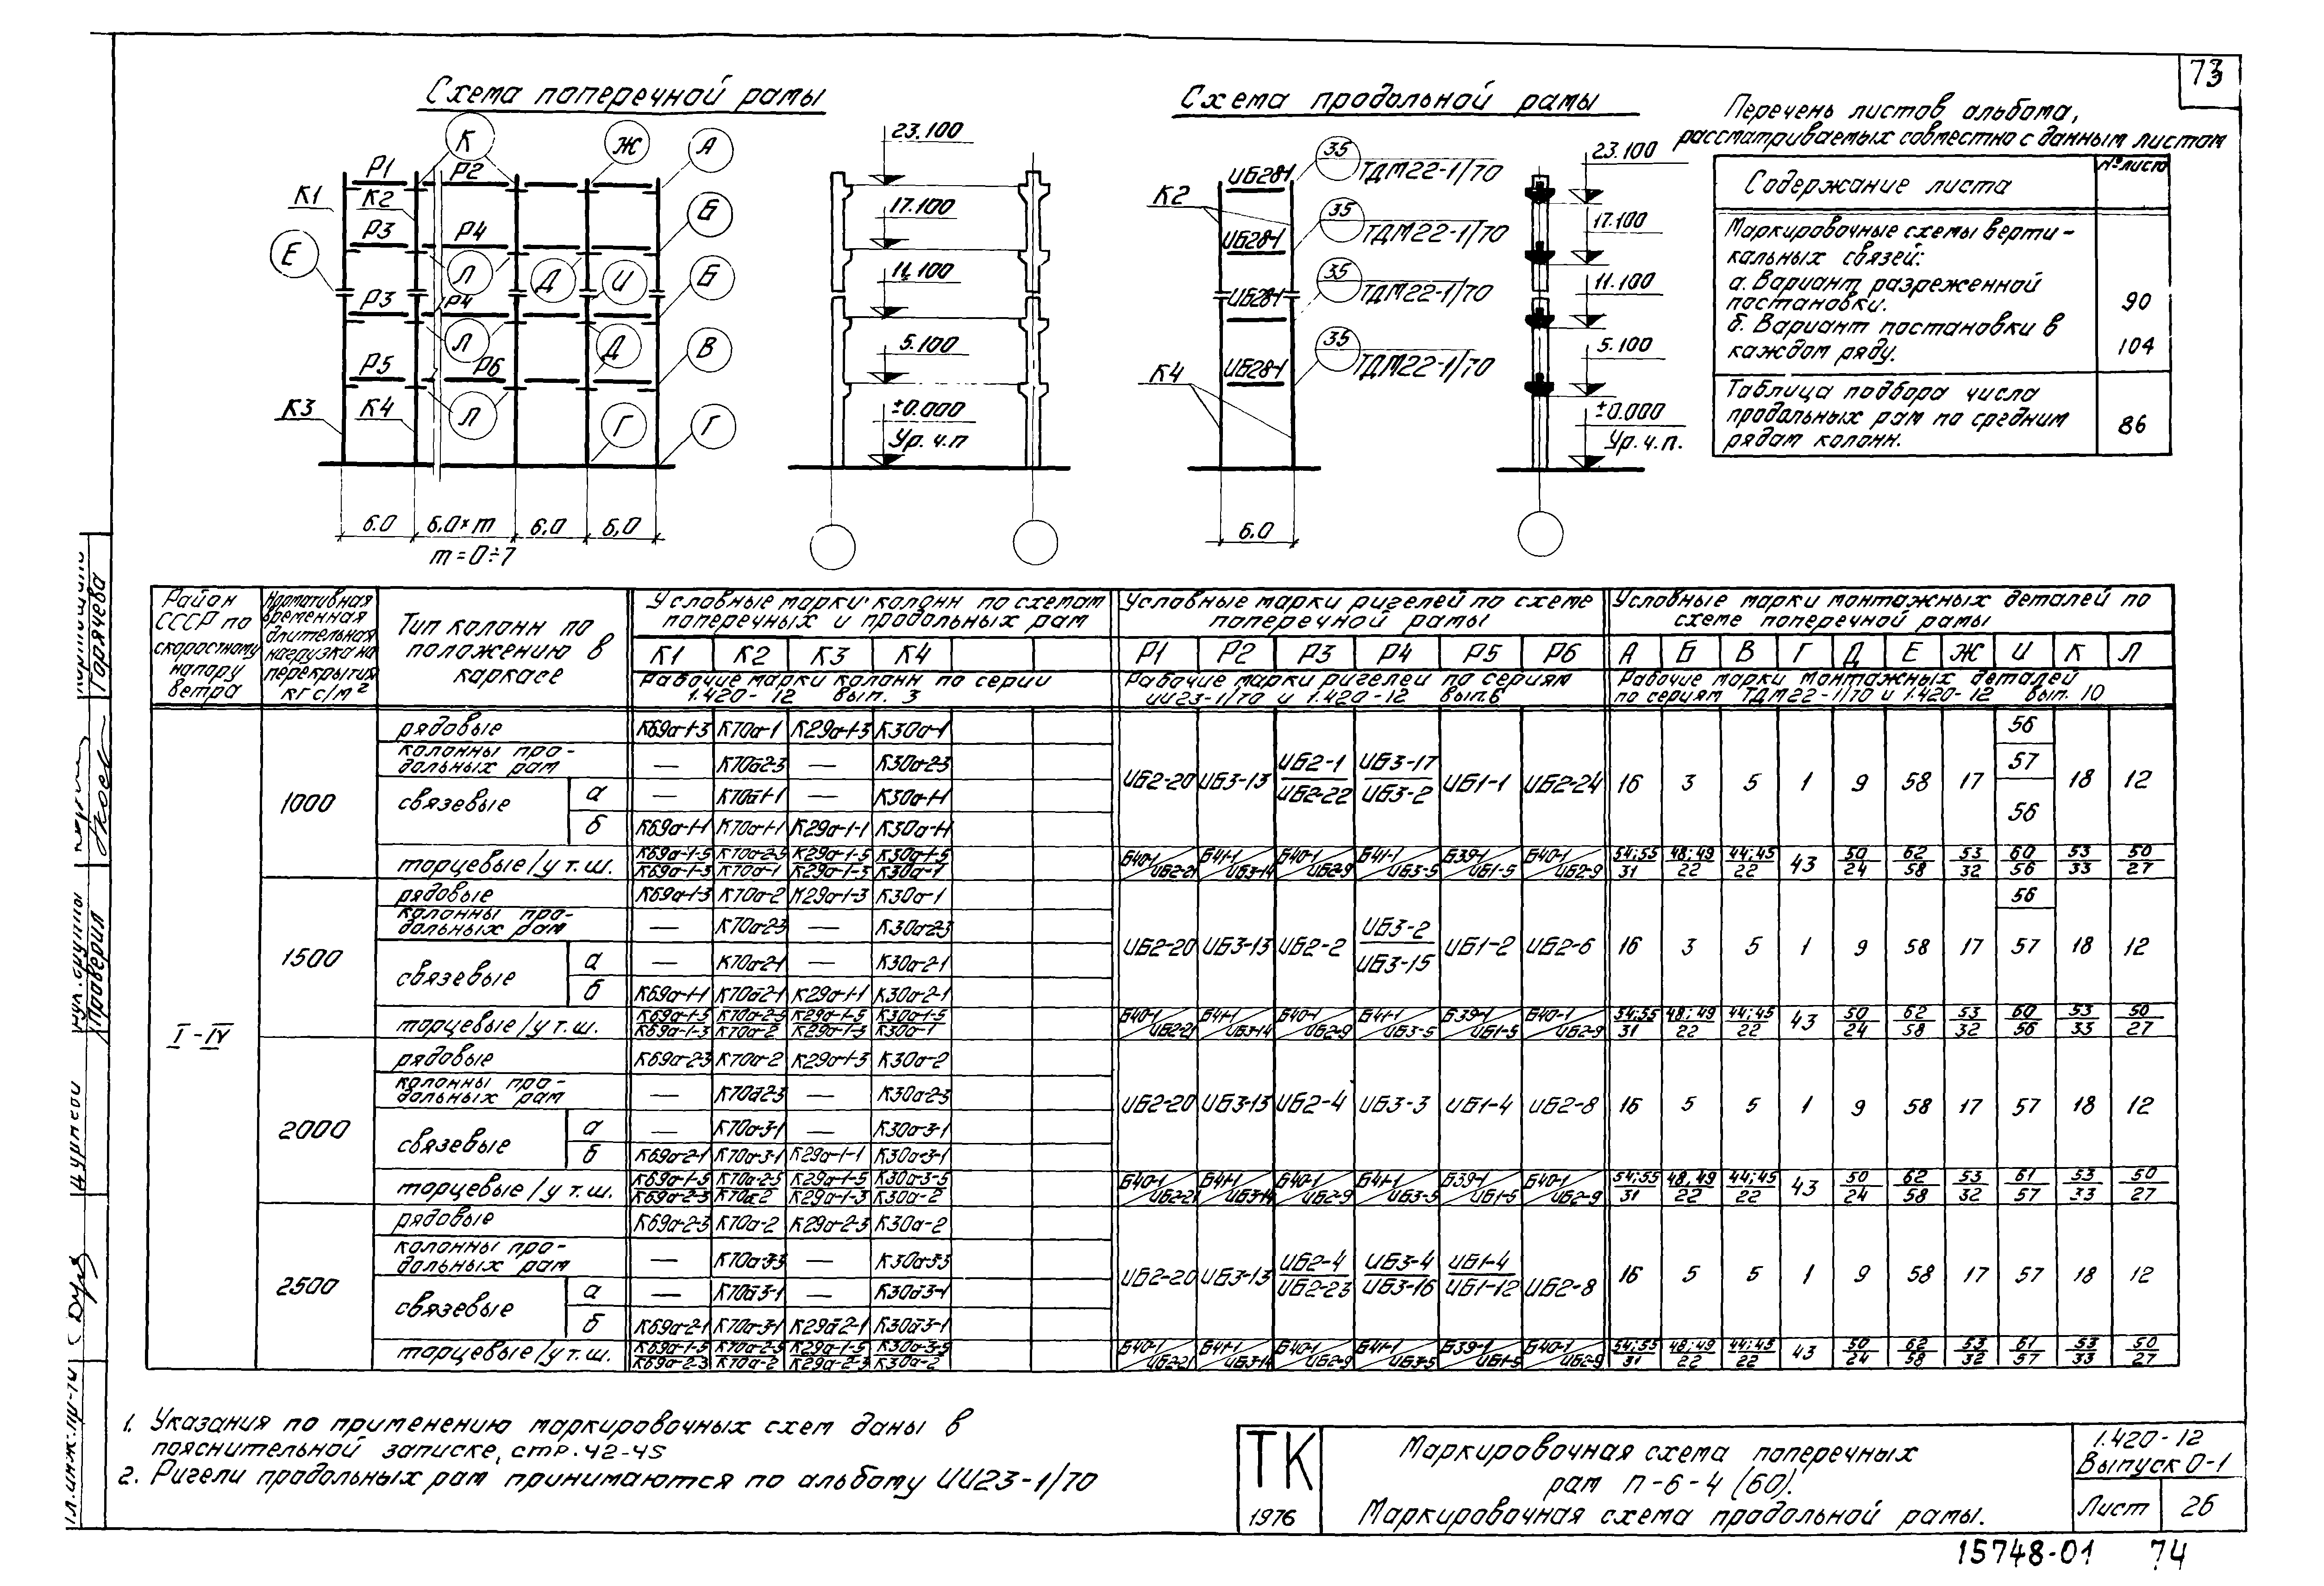 73
Схема поперечной рамы
К Ж А
Р1 Р2
К1 К2
Р3 Р4 Б
Е Л Д И Б
Р3 Р4
Л Д В
Р5 Р6
К3 К4 Л Г Г
6.0 6.0×m 6.0 6.0
m=0÷7
23.100
17.100
11.100
5.100
±0.000
Ур.ч.п
Схема продольной рамы
ИБ28-1 35 ТДМ22-1/70
К2
ИБ28-1 35 ТДМ22-1/70
ИБ28-1 35 ТДМ22-1/70
К4
ИБ28-1 35 ТДМ22-1/70
6.0
23.100
17.100
11.100
5.100
±0.000
Ур.ч.п.
Перечень листов альбома,
рассматриваемых совместно с данным листом
Содержание листа №листа
Маркировочные схемы верти-
кальных связей:
а. Вариант разреженной
постановки. 90
б. Вариант постановки в
каждом ряду. 104
Таблица подбора числа
продольных рам по средним
рядам колонн. 86
Район СССР по скоростному напору ветра
Нормативная временная длительная нагрузка на перекрытия кгс/м²
Тип колонн по положению в каркасе
Условные марки колонн по схемам поперечных и продольных рам
К1 К2 К3 К4
Рабочие марки колонн по серии 1.420-12 вып. 3
Условные марки ригелей по схеме поперечной рамы
Р1 Р2 Р3 Р4 Р5 Р6
Рабочие марки ригелей по сериям ИИ23-1/70 и 1.420-12 вып.6
Условные марки монтажных деталей по схеме поперечной рамы
А Б В Г Д Е Ж И К Л
Рабочие марки монтажных деталей по сериям ТДМ22-1/70 и 1.420-12 вып. 10
I-IV
1000
рядовые К69а-1-3 К70а-1 К29а-1-3 К30а-1
колонны продольных рам — К70а-2-3 — К30а-2-3
связевые а — К70а-1-1 — К30а-1-1
б К69а-1-1 К70а-1-1 К29а-1-1 К30а-1-1
ИБ2-20 ИБ3-13 ИБ2-1/ИБ2-22 ИБ3-17/ИБ3-2 ИБ1-1 ИБ2-24 16 3 5 1 9 58 17 56 57 56 18 12
торцевые/у т.ш. К69а-1-5/К69а-1-3 К70а-2-5/К70а-1 К29а-1-5/К29а-1-3 К30а-1-5/К30а-1 Б40-1/ИБ2-21 Б41-1/ИБ3-14 Б40-1/ИБ2-9 Б41-1/ИБ3-5 Б39-1/ИБ1-5 Б40-1/ИБ2-9 54;55/31 48;49/22 44;45/22 43 50/24 62/58 53/32 60/56 53/33 50/27
1500
рядовые К69а-1-3 К70а-2 К29а-1-3 К30а-1
колонны продольных рам — К70а-2-3 — К30а-2-3
связевые а — К70а-2-1 — К30а-2-1
б К69а-1-1 К70а-2-1 К29а-1-1 К30а-2-1
ИБ2-20 ИБ3-13 ИБ2-2 ИБ3-2/ИБ3-15 ИБ1-2 ИБ2-6 16 3 5 1 9 58 17 56 57 18 12
торцевые/у т.ш. К69а-1-5/К69а-1-3 К70а-2-5/К70а-2 К29а-1-5/К29а-1-3 К30а-1-5/К30а-1 Б40-1/ИБ2-21 Б41-1/ИБ3-14 Б40-1/ИБ2-9 Б41-1/ИБ3-5 Б39-1/ИБ1-5 Б40-1/ИБ2-9 54;55/31 48;49/22 44;45/22 43 50/24 62/58 53/32 60/56 53/33 50/27
2000
рядовые К69а-2-3 К70а-2 К29а-1-3 К30а-2
колонны продольных рам — К70а-2-3 — К30а-2-3
связевые а — К70а-3-1 — К30а-3-1
б К69а-2-1 К70а-3-1 К29а-1-1 К30а-3-1
ИБ2-20 ИБ3-13 ИБ2-4 ИБ3-3 ИБ1-4 ИБ2-8 16 5 5 1 9 58 17 57 18 12
торцевые/у т.ш. К69а-1-5/К69а-2-3 К70а-2-5/К70а-2 К29а-1-5/К29а-1-3 К30а-3-5/К30а-2 Б40-1/ИБ2-21 Б41-1/ИБ3-14 Б40-1/ИБ2-9 Б41-1/ИБ3-5 Б39-1/ИБ1-5 Б40-1/ИБ2-9 54;55/31 48,49/22 44;45/22 43 50/24 62/58 53/32 61/57 53/33 50/27
2500
рядовые К69а-2-3 К70а-2 К29а-2-3 К30а-2
колонны продольных рам — К70а-3-3 — К30а-3-3
связевые а — К70а-3-1 — К30а-3-1
б К69а-2-1 К70а-3-1 К29а-2-1 К30а-3-1
ИБ2-20 ИБ3-13 ИБ2-4/ИБ2-23 ИБ3-4/ИБ3-16 ИБ1-4/ИБ1-12 ИБ2-8 16 5 5 1 9 58 17 57 18 12
торцевые/у т.ш. К69а-1-5/К69а-2-3 К70а-2-5/К70а-2 К29а-1-5/К29а-2-3 К30а-3-5/К30а-2 Б40-1/ИБ2-21 Б41-1/ИБ3-14 Б40-1/ИБ2-9 Б41-1/ИБ3-5 Б39-1/ИБ1-5 Б40-1/ИБ2-9 54;55/31 48;49/22 44;45/22 43 50/24 62/58 53/32 61/57 53/33 50/27
1. Указания по применению маркировочных схем даны в
пояснительной записке, стр. 42-45
2. Ригели продольных рам принимаются по альбому ИИ23-1/70
ТК
1976
Маркировочная схема поперечных
рам п-6-4 (60).
Маркировочная схема продольной рамы.
1.420-12
Выпуск 0-1
Лист 26
15748-01 74
Горячева
Проверил